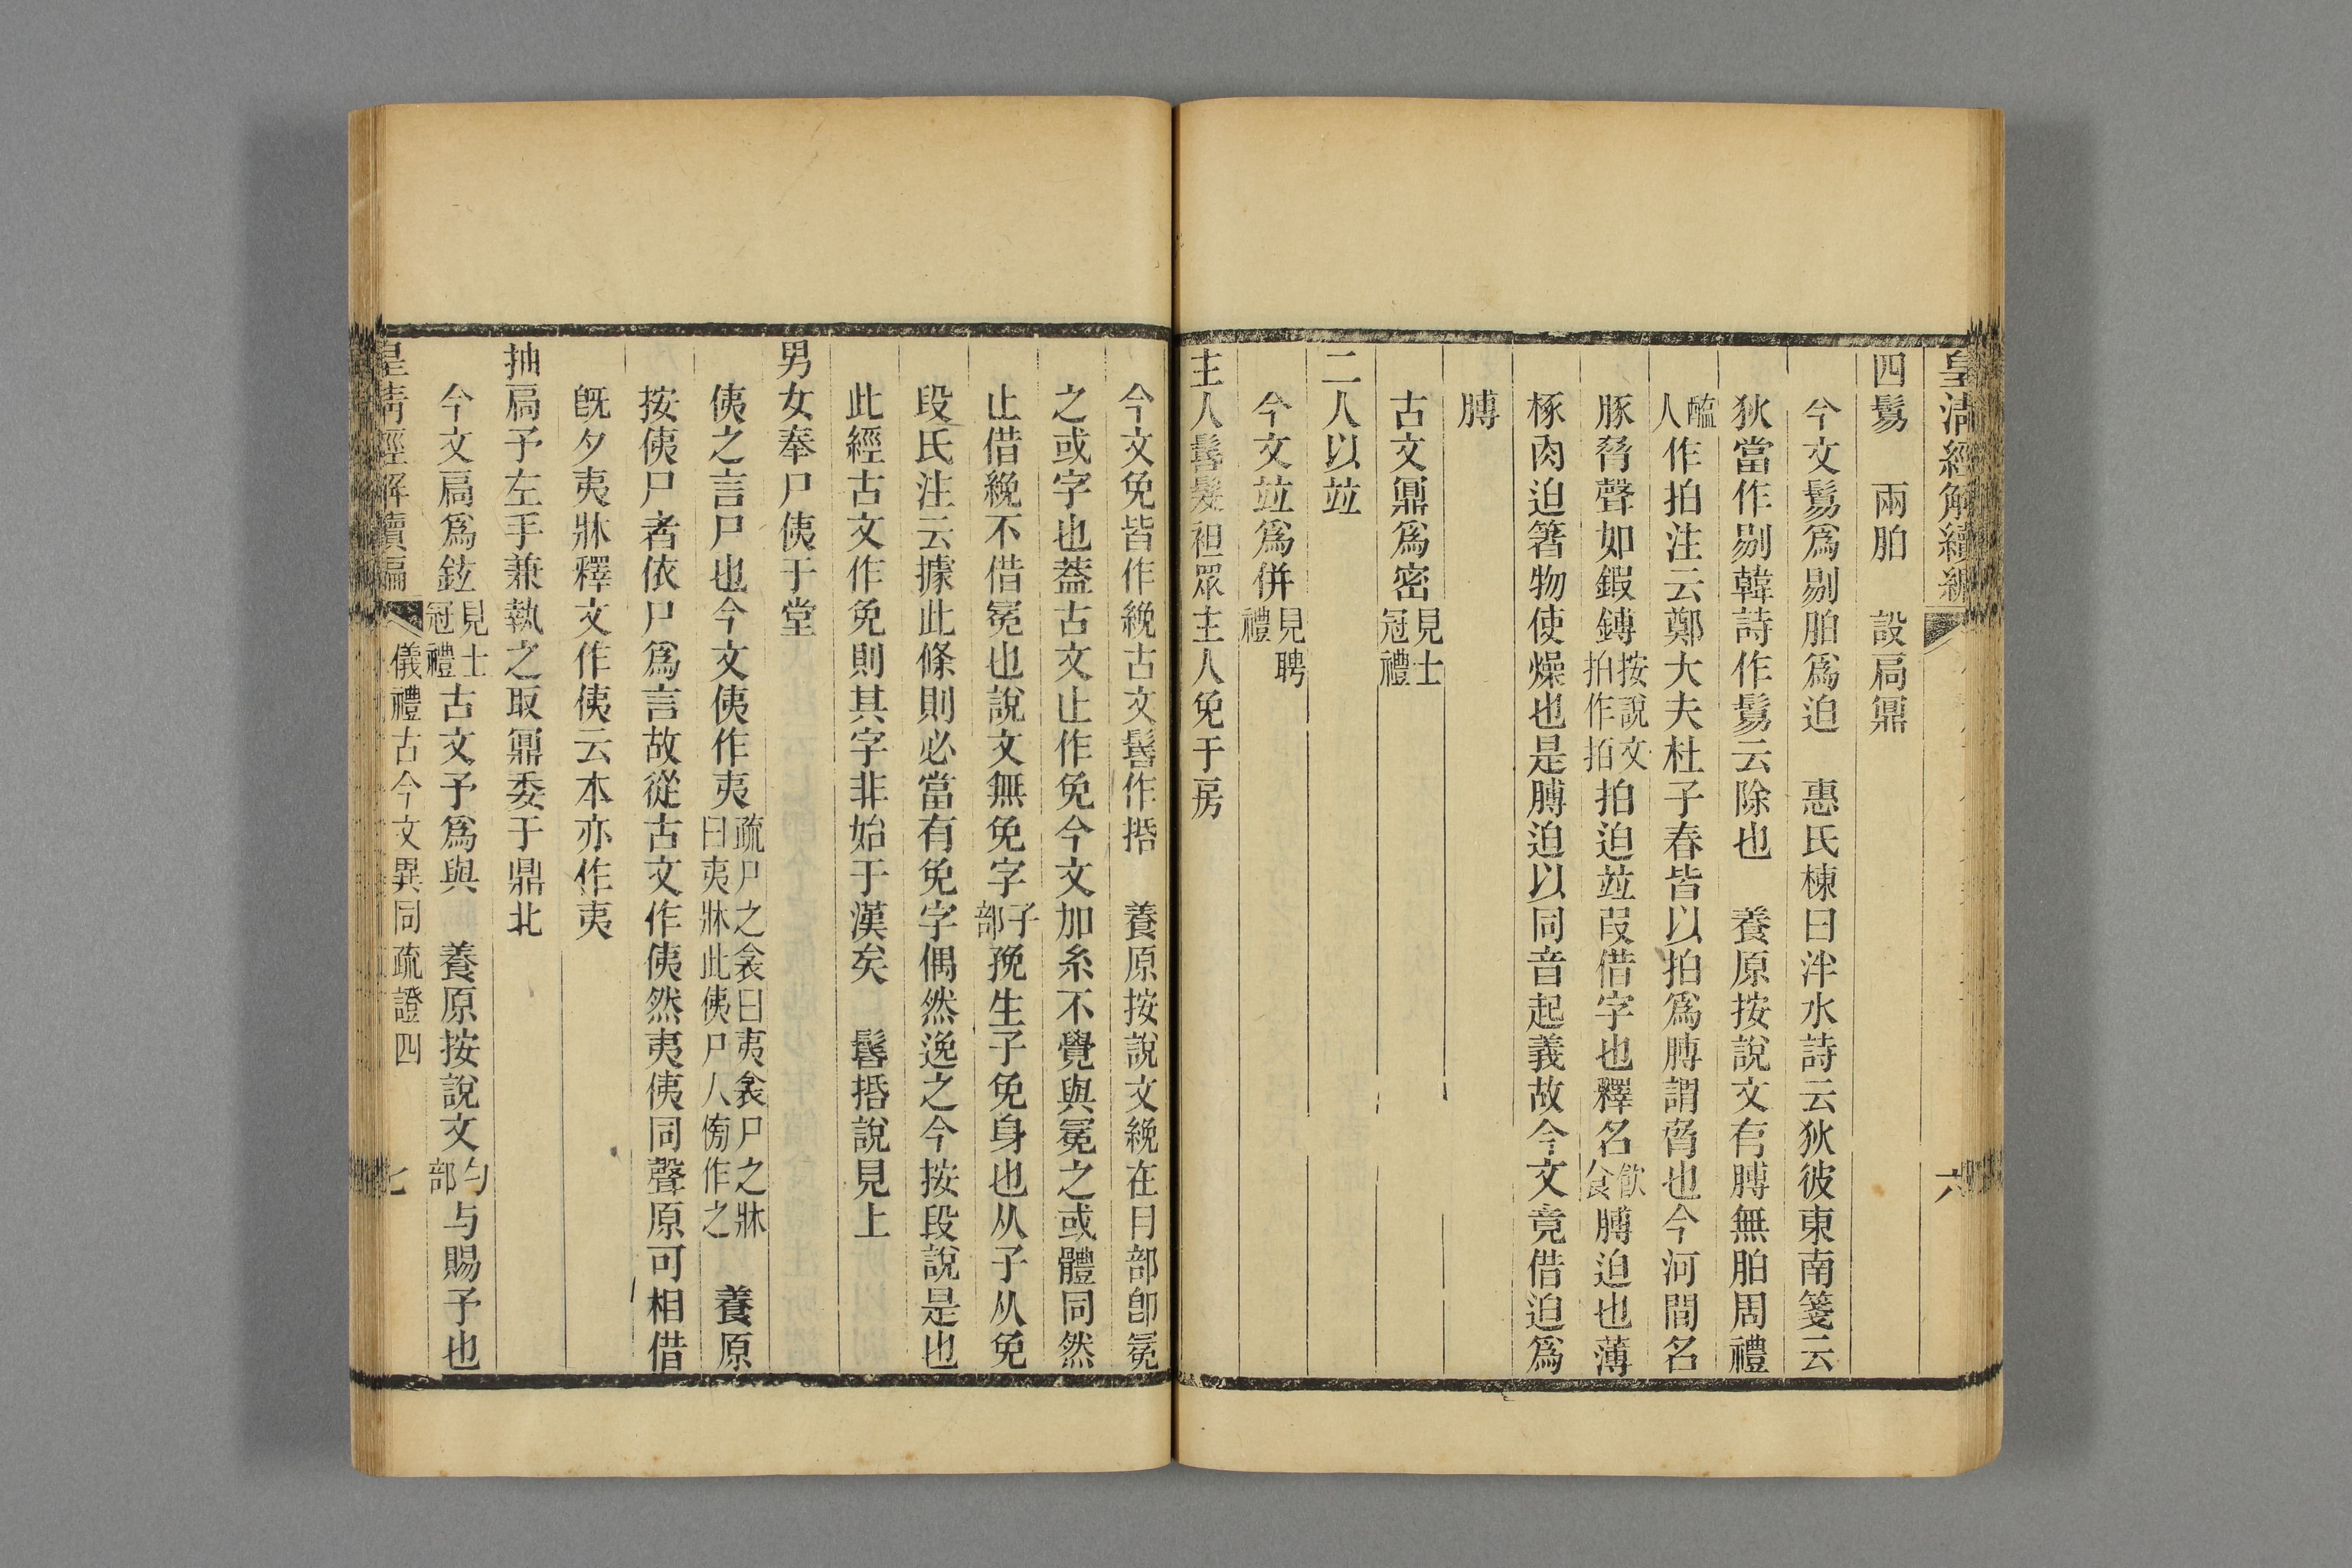 皇淸經解續編　六
四鬄　兩胉　設扃鼏
今文鬄爲剔胉爲迫　惠氏棟曰泮水詩云狄彼東南箋云
狄當作剔韓詩作鬄云除也　養原按說文有膊無胉周禮
醢人作拍注云鄭大夫杜子春皆以拍爲膊謂脅也今河間名
豚脅聲如鍜鎛按說文拍作𢫦拍迫竝叚借字也釋名飮食膊迫也薄
椓肉迫箸物使燥也是膊迫以同音起義故今文竟借迫爲
膊
古文鼏爲密見士冠禮
二人以竝
今文竝爲併見聘禮
主人髺髮袒眾主人免于房
今文免皆作絻古文髺作括　養原按說文絻在冃部卽冕
之或字也葢古文止作免今文加糸不覺與冕之或體同然
止借絻不借冕也說文無免字子部㝃生子免身也从子从免
段氏注云據此條則必當有免字偶然逸之今按段說是也
此經古文作免則其字非始于漢矣　髺括說見上
男女奉尸侇于堂
侇之言尸也今文侇作夷疏尸之衾曰夷衾尸之牀曰夷牀此侇尸人㑄作之　養原
按侇尸者依尸爲言故從古文作侇然夷侇同聲原可相借
旣夕夷牀釋文作侇云本亦作夷
抽扃予左手兼執之取鼏委于鼎北
今文扃爲鉉見士冠禮古文予爲與　養原按說文勺部与賜予也
皇淸經解續編　儀禮古今文異同疏證四　七